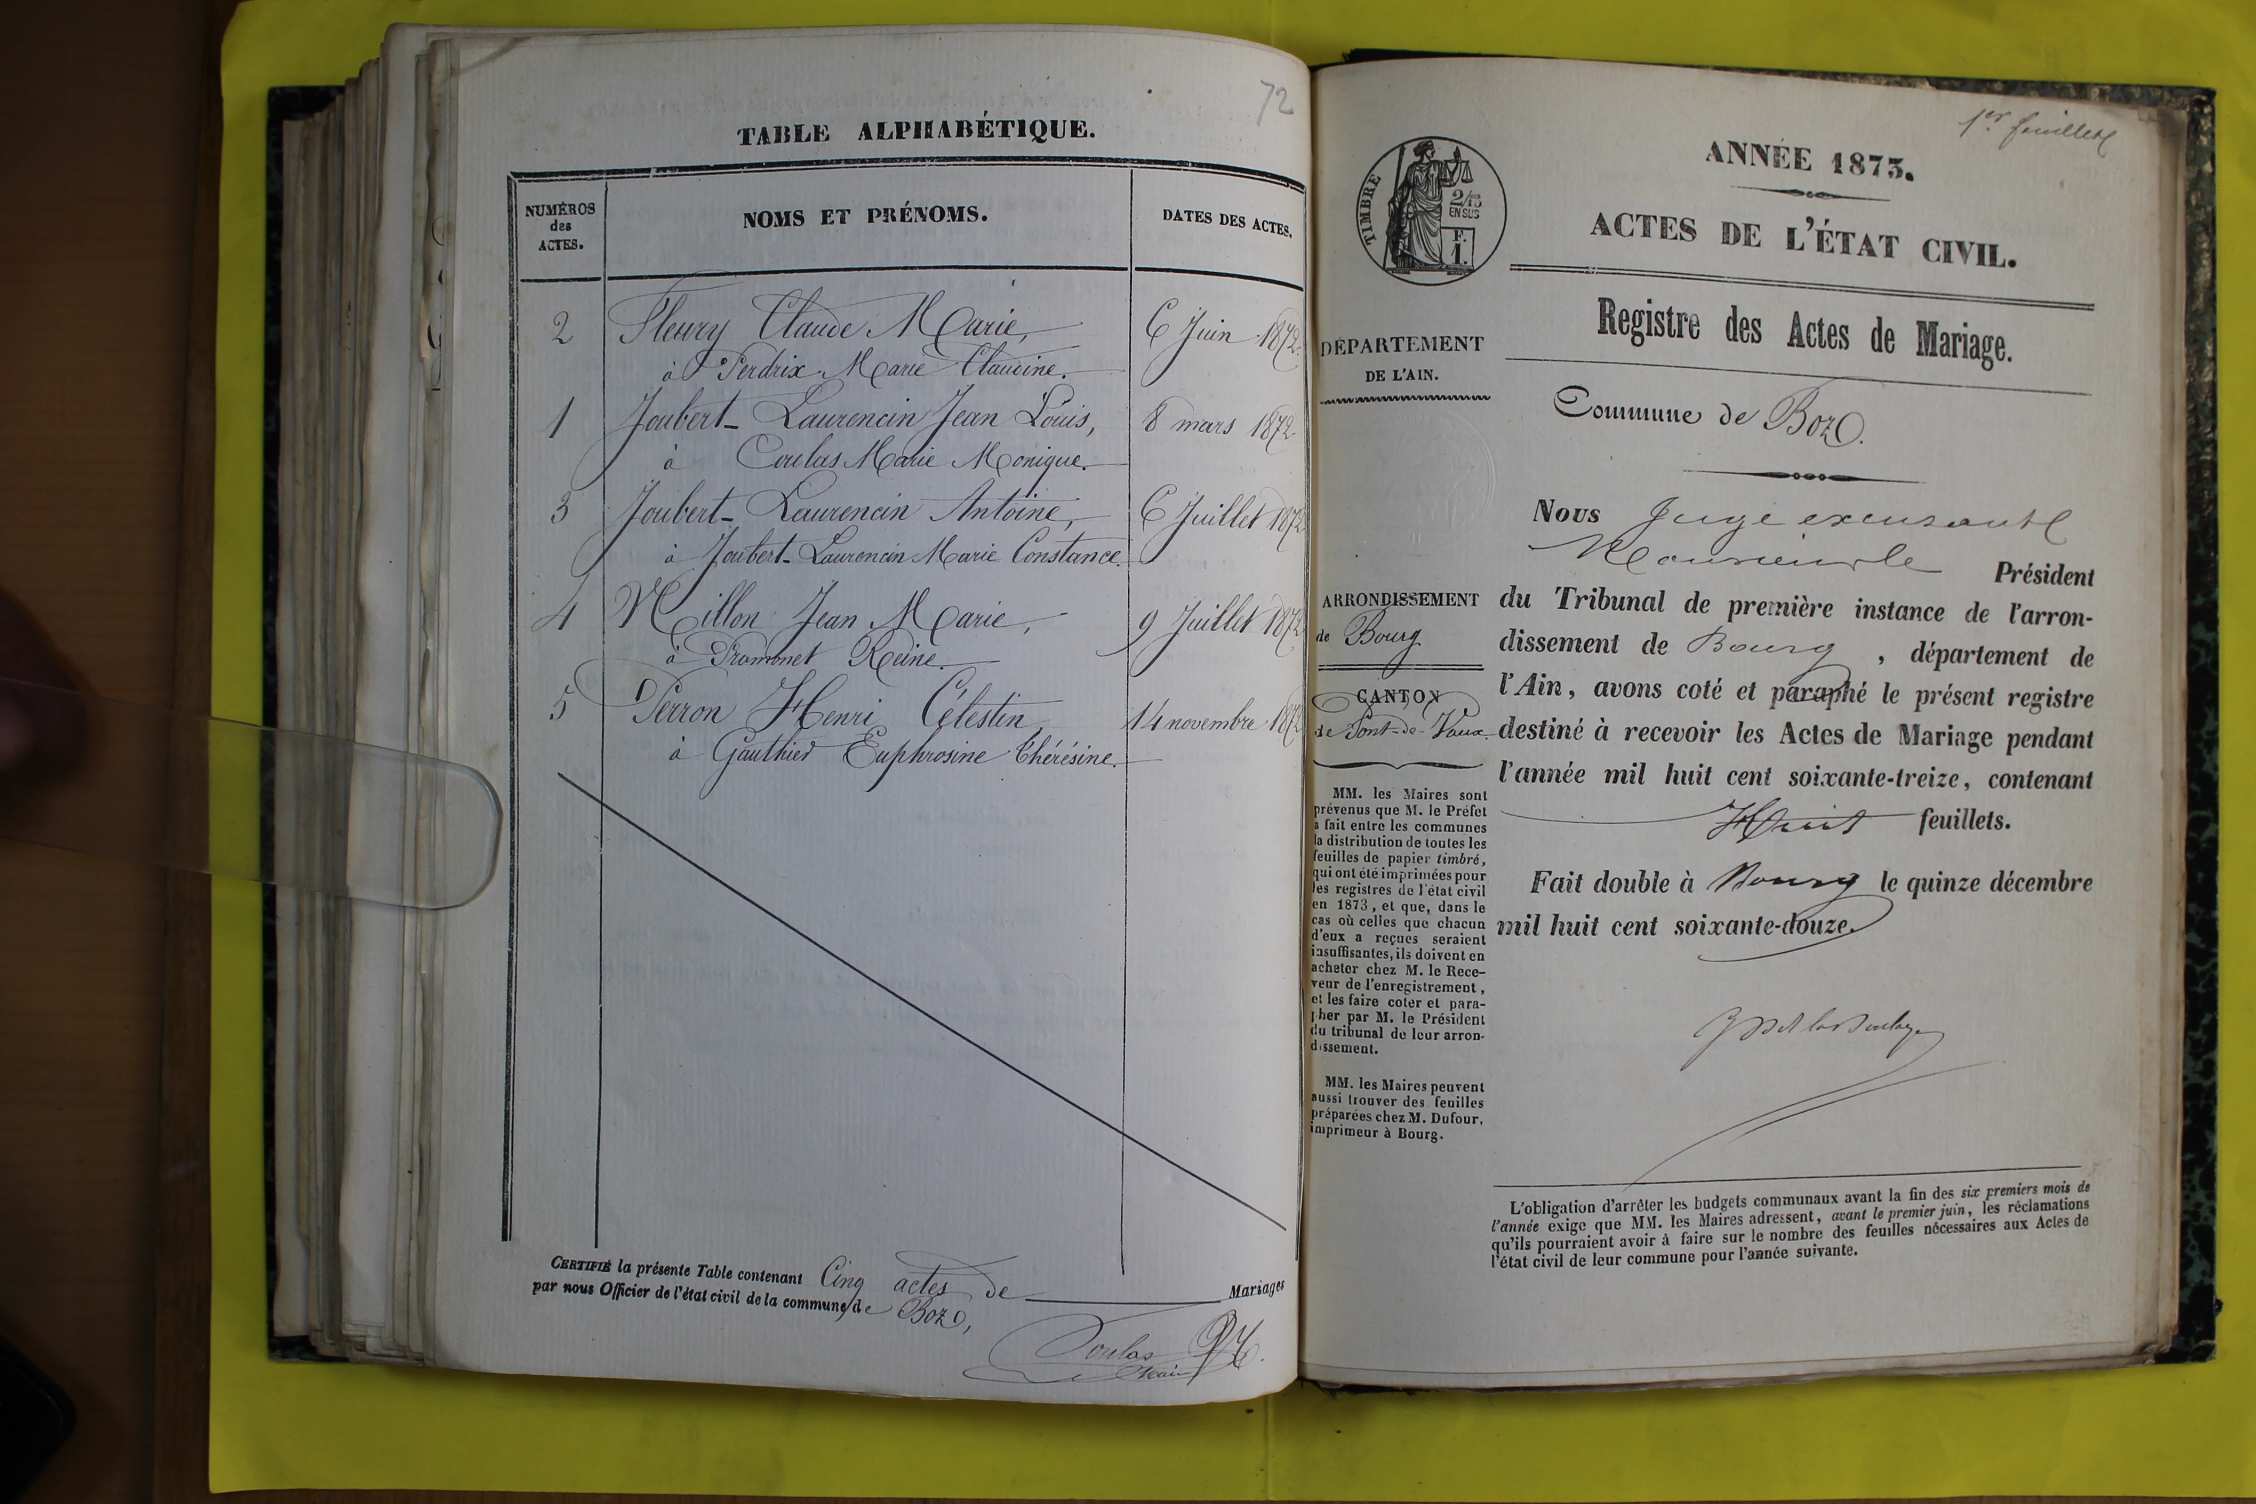 72
TABLE ALPHABÉTIQUE.
NUMÉROS
des
ACTES.
NOMS ET PRÉNOMS.
DATES DES ACTES.
2 Fleury Claude Marie, 6 Juin 1872.
à Perdrix Marie Claudine.
1 Joubert-Laurencin Jean Louis, 8 mars 1872.
à Coulas Marie Monique.
3 Joubert-Laurencin Antoine, 6 Juillet 1872
à Joubert-Laurencin Marie Constance.
4 Millon Jean Marie, 9 Juillet 1872
à Prommet Reine.
5 Perron Henri Célestin, 14 novembre 1872
à Gauthier Euphrosine Thérésine.
CERTIFIÉ la présente Table contenant Cinq actes de Mariages
par nous Officier de l'état civil de la commune de Boz,
Coulas
1er feuillet
TIMBRE
2/10
EN SUS
F.
1.
ANNÉE 1873.
ACTES DE L'ÉTAT CIVIL.
Registre des Actes de Mariage.
Commune de Boz.
DÉPARTEMENT
DE L'AIN.
ARRONDISSEMENT
de Bourg
CANTON
de Pont-de-Vaux
MM. les Maires sont
prévenus que M. le Préfet
a fait entre les communes
la distribution de toutes les
feuilles de papier timbré,
qui ont été imprimées pour
les registres de l'état civil
en 1873, et que, dans le
cas où celles que chacun
d'eux a reçues seraient
insuffisantes, ils doivent en
acheter chez M. le Rece-
veur de l'enregistrement,
et les faire coter et para-
pher par M. le Président
du tribunal de leur arron-
dissement.
MM. les Maires peuvent
aussi trouver des feuilles
préparées chez M. Dufour,
imprimeur à Bourg.
Nous Juge
Monsieur le Président
du Tribunal de première instance de l'arron-
dissement de Bourg, département de
l'Ain, avons coté et paraphé le présent registre
destiné à recevoir les Actes de Mariage pendant
l'année mil huit cent soixante-treize, contenant
Huit feuillets.
Fait double à Bourg le quinze décembre
mil huit cent soixante-douze.
L'obligation d'arrêter les budgets communaux avant la fin des six premiers mois de
l'année exige que MM. les Maires adressent, avant le premier juin, les réclamations
qu'ils pourraient avoir à faire sur le nombre des feuilles nécessaires aux Actes de
l'état civil de leur commune pour l'année suivante.